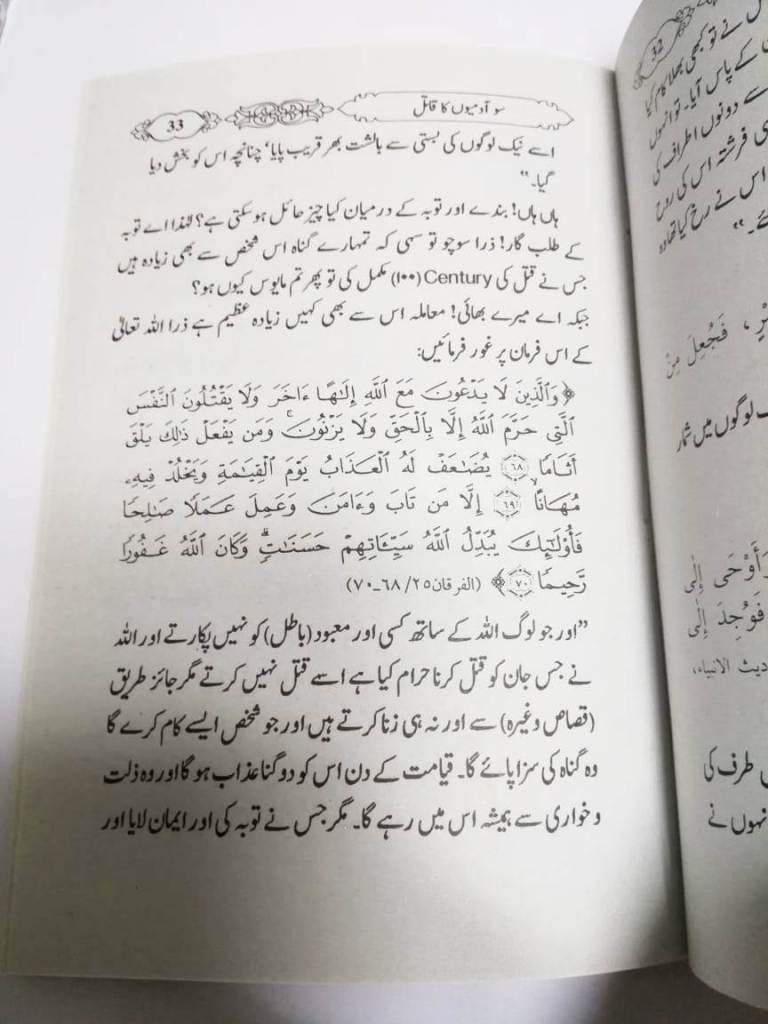 سو آدمیوں کا قاتل
33
اسے نیک لوگوں کی بستی سے بالشت بھر قریب پایا، چنانچہ اس کو بخش دیا
گیا۔"
ہاں ہاں! بندے اور توبہ کے درمیان کیا چیز حائل ہو سکتی ہے؟ لہٰذا اے توبہ
کے طلب گار! ذرا سوچو تو سہی کہ تمہارے گناہ اس شخص سے بھی زیادہ ہیں
جس نے قتل کی Century (۱۰۰) مکمل کی تو پھر تم مایوس کیوں ہو؟
جبکہ اے میرے بھائی! معاملہ اس سے بھی کہیں زیادہ عظیم ہے ذرا اللہ تعالیٰ
کے اس فرمان پر غور فرمائیں:
﴿وَٱلَّذِينَ لَا يَدْعُونَ مَعَ ٱللَّهِ إِلَٰهًا ءَاخَرَ وَلَا يَقْتُلُونَ ٱلنَّفْسَ
ٱلَّتِى حَرَّمَ ٱللَّهُ إِلَّا بِٱلْحَقِّ وَلَا يَزْنُونَ ۚ وَمَن يَفْعَلْ ذَٰلِكَ يَلْقَ
أَثَامًا ﴿٦٨﴾ يُضَٰعَفْ لَهُ ٱلْعَذَابُ يَوْمَ ٱلْقِيَٰمَةِ وَيَخْلُدْ فِيهِۦ
مُهَانًا ﴿٦٩﴾ إِلَّا مَن تَابَ وَءَامَنَ وَعَمِلَ عَمَلًا صَٰلِحًا
فَأُو۟لَٰٓئِكَ يُبَدِّلُ ٱللَّهُ سَيِّـَٔاتِهِمْ حَسَنَٰتٍ ۗ وَكَانَ ٱللَّهُ غَفُورًا
رَّحِيمًا ﴿٧٠﴾﴾ (الفرقان ۲۵/ ۶۸۔۷۰)
"اور جو لوگ اللہ کے ساتھ کسی اور معبود (باطل) کو نہیں پکارتے اور اللہ
نے جس جان کو قتل کرنا حرام کیا ہے اسے قتل نہیں کرتے مگر جائز طریق
(قصاص وغیرہ) سے اور نہ ہی زنا کرتے ہیں اور جو شخص ایسے کام کرے گا
وہ گناہ کی سزا پائے گا۔ قیامت کے دن اس کو دو گنا عذاب ہو گا اور وہ ذلت
و خواری سے ہمیشہ اس میں رہے گا۔ مگر جس نے توبہ کی اور ایمان لایا اور
32
نے تو کبھی بھلا کام کیا
کے پاس آیا۔ تو انہوں
سے دونوں اطراف کی
فرشتہ اس کی روح
اس نے رخ کیا تھا وہ
فَجُعِلَ مِنْ
لوگوں میں شمار
أَوْحَى إِلَى
فَوُجِدَ إِلَى
الانبیاء،
طرف کی
انہوں نے